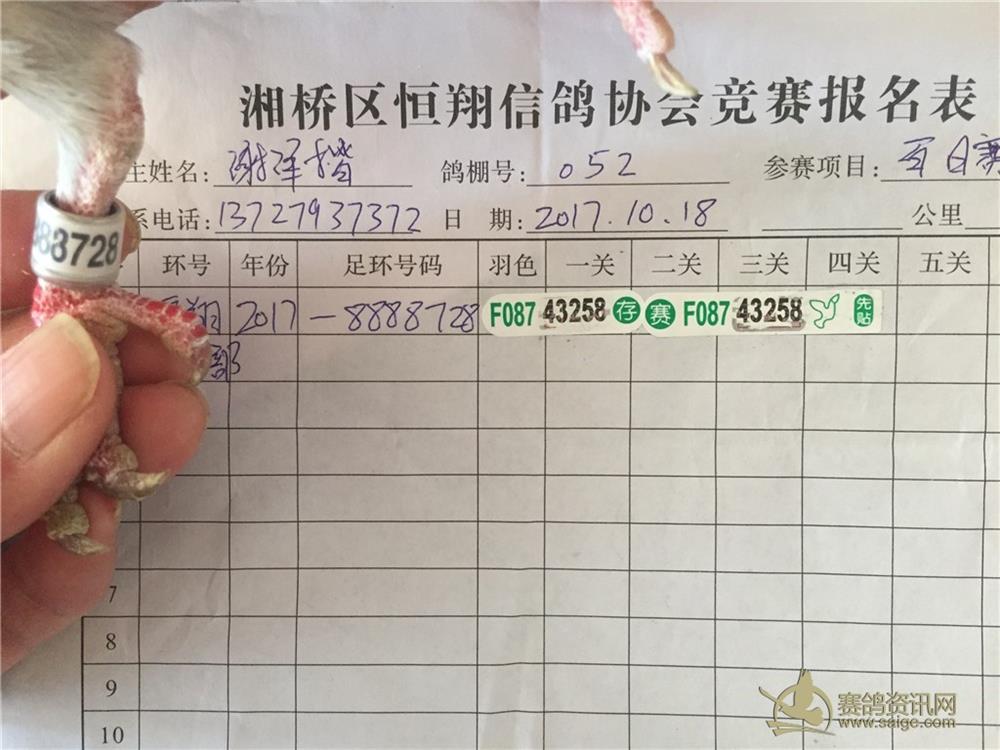 湘桥区恒翔信鸽协会竞赛报名表
主姓名: 谢泽楷 鸽棚号: 052 参赛项目: 百日赛
系电话: 13727937372 日 期: 2017.10.18 公里
环号 年份 足环号码 羽色 一关 二关 三关 四关 五关
翔 2017 — 8888728 F087 43258 存 赛 F087 43258 先贴
部
88728
7
8
9
10
赛鸽资讯网
www.saigc.com